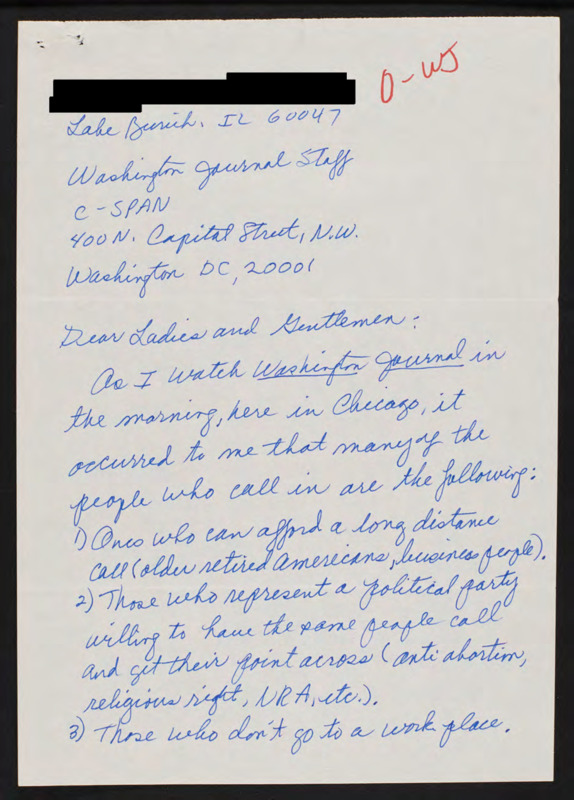 O-WJ
Lake Zurich, IL 60047
Washington Journal Staff
C-SPAN
400 N. Capital Street, N.W.
Washington DC, 20001
Dear Ladies and Gentlemen:
As I watch Washington Journal in
the morning, here in Chicago, it
occurred to me that many of the
people who call in are the following:
1) Ones who can afford a long distance
call (older retired Americans, business people).
2) Those who represent a political party
willing to have the same people call
and get their point across (anti abortion,
religious right, NRA, etc.).
3) Those who don't go to a work place.